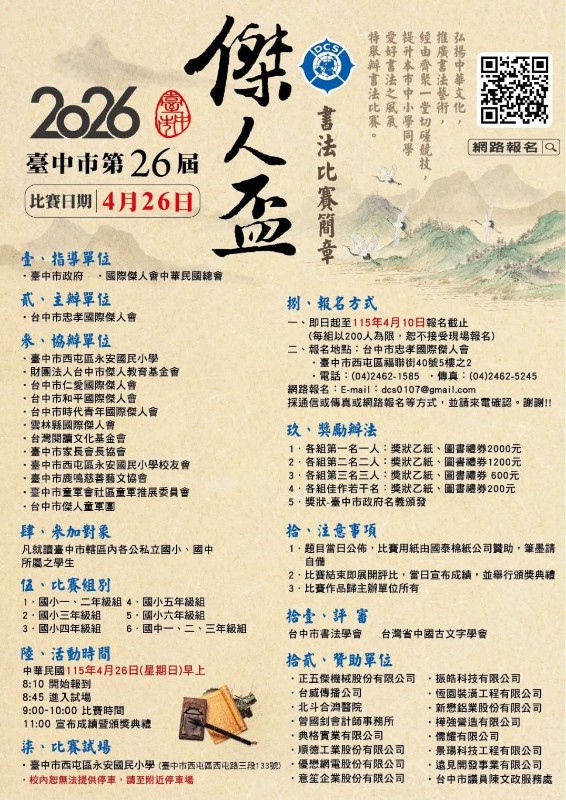 2026
臺中市第26屆
比賽日期 4月26日
傑人盃
DCS
書法比賽簡章
弘揚中華文化，
推廣書法藝術，
經由齊聚一堂切磋競技，
提升本市中小學同學
愛好書法之風氣
特舉辦書法比賽。
網路報名
壹、指導單位
・臺中市政府 ・國際傑人會中華民國總會
貳、主辦單位
・台中市忠孝國際傑人會
參、協辦單位
・臺中市西屯區永安國民小學
・財團法人台中市傑人教育基金會
・台中市仁愛國際傑人會
・台中市和平國際傑人會
・台中市時代青年國際傑人會
・雲林縣國際傑人會
・台灣閱讀文化基金會
・臺中市家長會長協會
・臺中市西屯區永安國民小學校友會
・臺中市鹿鳴慈善藝文協會
・臺中市童軍會社區童軍推展委員會
・台中市傑人童軍團
肆、參加對象
凡就讀臺中市轄區內各公私立國小、國中
所屬之學生
伍、比賽組別
1．國小一、二年級組 4．國小五年級組
2．國小三年級組 5．國小六年級組
3．國小四年級組 6．國中一、二、三年級組
陸、活動時間
中華民國115年4月26日(星期日)早上
8:10 開始報到
8:45 進入試場
9:00-10:00 比賽時間
11:00 宣布成績暨頒獎典禮
柒、比賽試場
・臺中市西屯區永安國民小學 (臺中市西屯區西屯路三段133號)
・校內恕無法提供停車，請至附近停車場
捌、報名方式
一、即日起至115年4月10日報名截止
(每組以200人為限，恕不接受現場報名)
二、報名地點：台中市忠孝國際傑人會
・臺中市西屯區福聯街40號5樓之2
・電話：(04)2462-1585 ・傳真：(04)2462-5245
網路報名：E-mail：dcs0107@gmail.com
採通信或傳真或網路報名等方式，並請來電確認。謝謝!!
玖、獎勵辦法
1．各組第一名一人：獎狀乙紙、圖書禮券2000元
2．各組第二名二人：獎狀乙紙、圖書禮券1200元
3．各組第三名三人：獎狀乙紙、圖書禮券 600元
4．各組佳作若干名：獎狀乙紙、圖書禮券200元
5．獎狀-臺中市政府名義頒發
拾、注意事項
1．題目當日公佈，比賽用紙由國泰棉紙公司贊助，筆墨請
自備
2．比賽結束即展開評比，當日宣布成績，並舉行頒獎典禮
3．比賽作品歸主辦單位所有
拾壹、評 審
台中市書法學會 台灣省中國古文字學會
拾貳、贊助單位
・正五傑機械股份有限公司 ・振皓科技有限公司
・台威傳播公司 ・恆園裝潢工程有限公司
・北斗合濟醫院 ・新懋鋁業股份有限公司
・曾國釗會計師事務所 ・樺強營造有限公司
・典格實業有限公司 ・儒耀有限公司
・順德工業股份有限公司 ・景瑒科技工程有限公司
・優懋網電股份有限公司 ・遠見開發事業有限公司
・意笙企業股份有限公司 ・台中市議員陳文政服務處